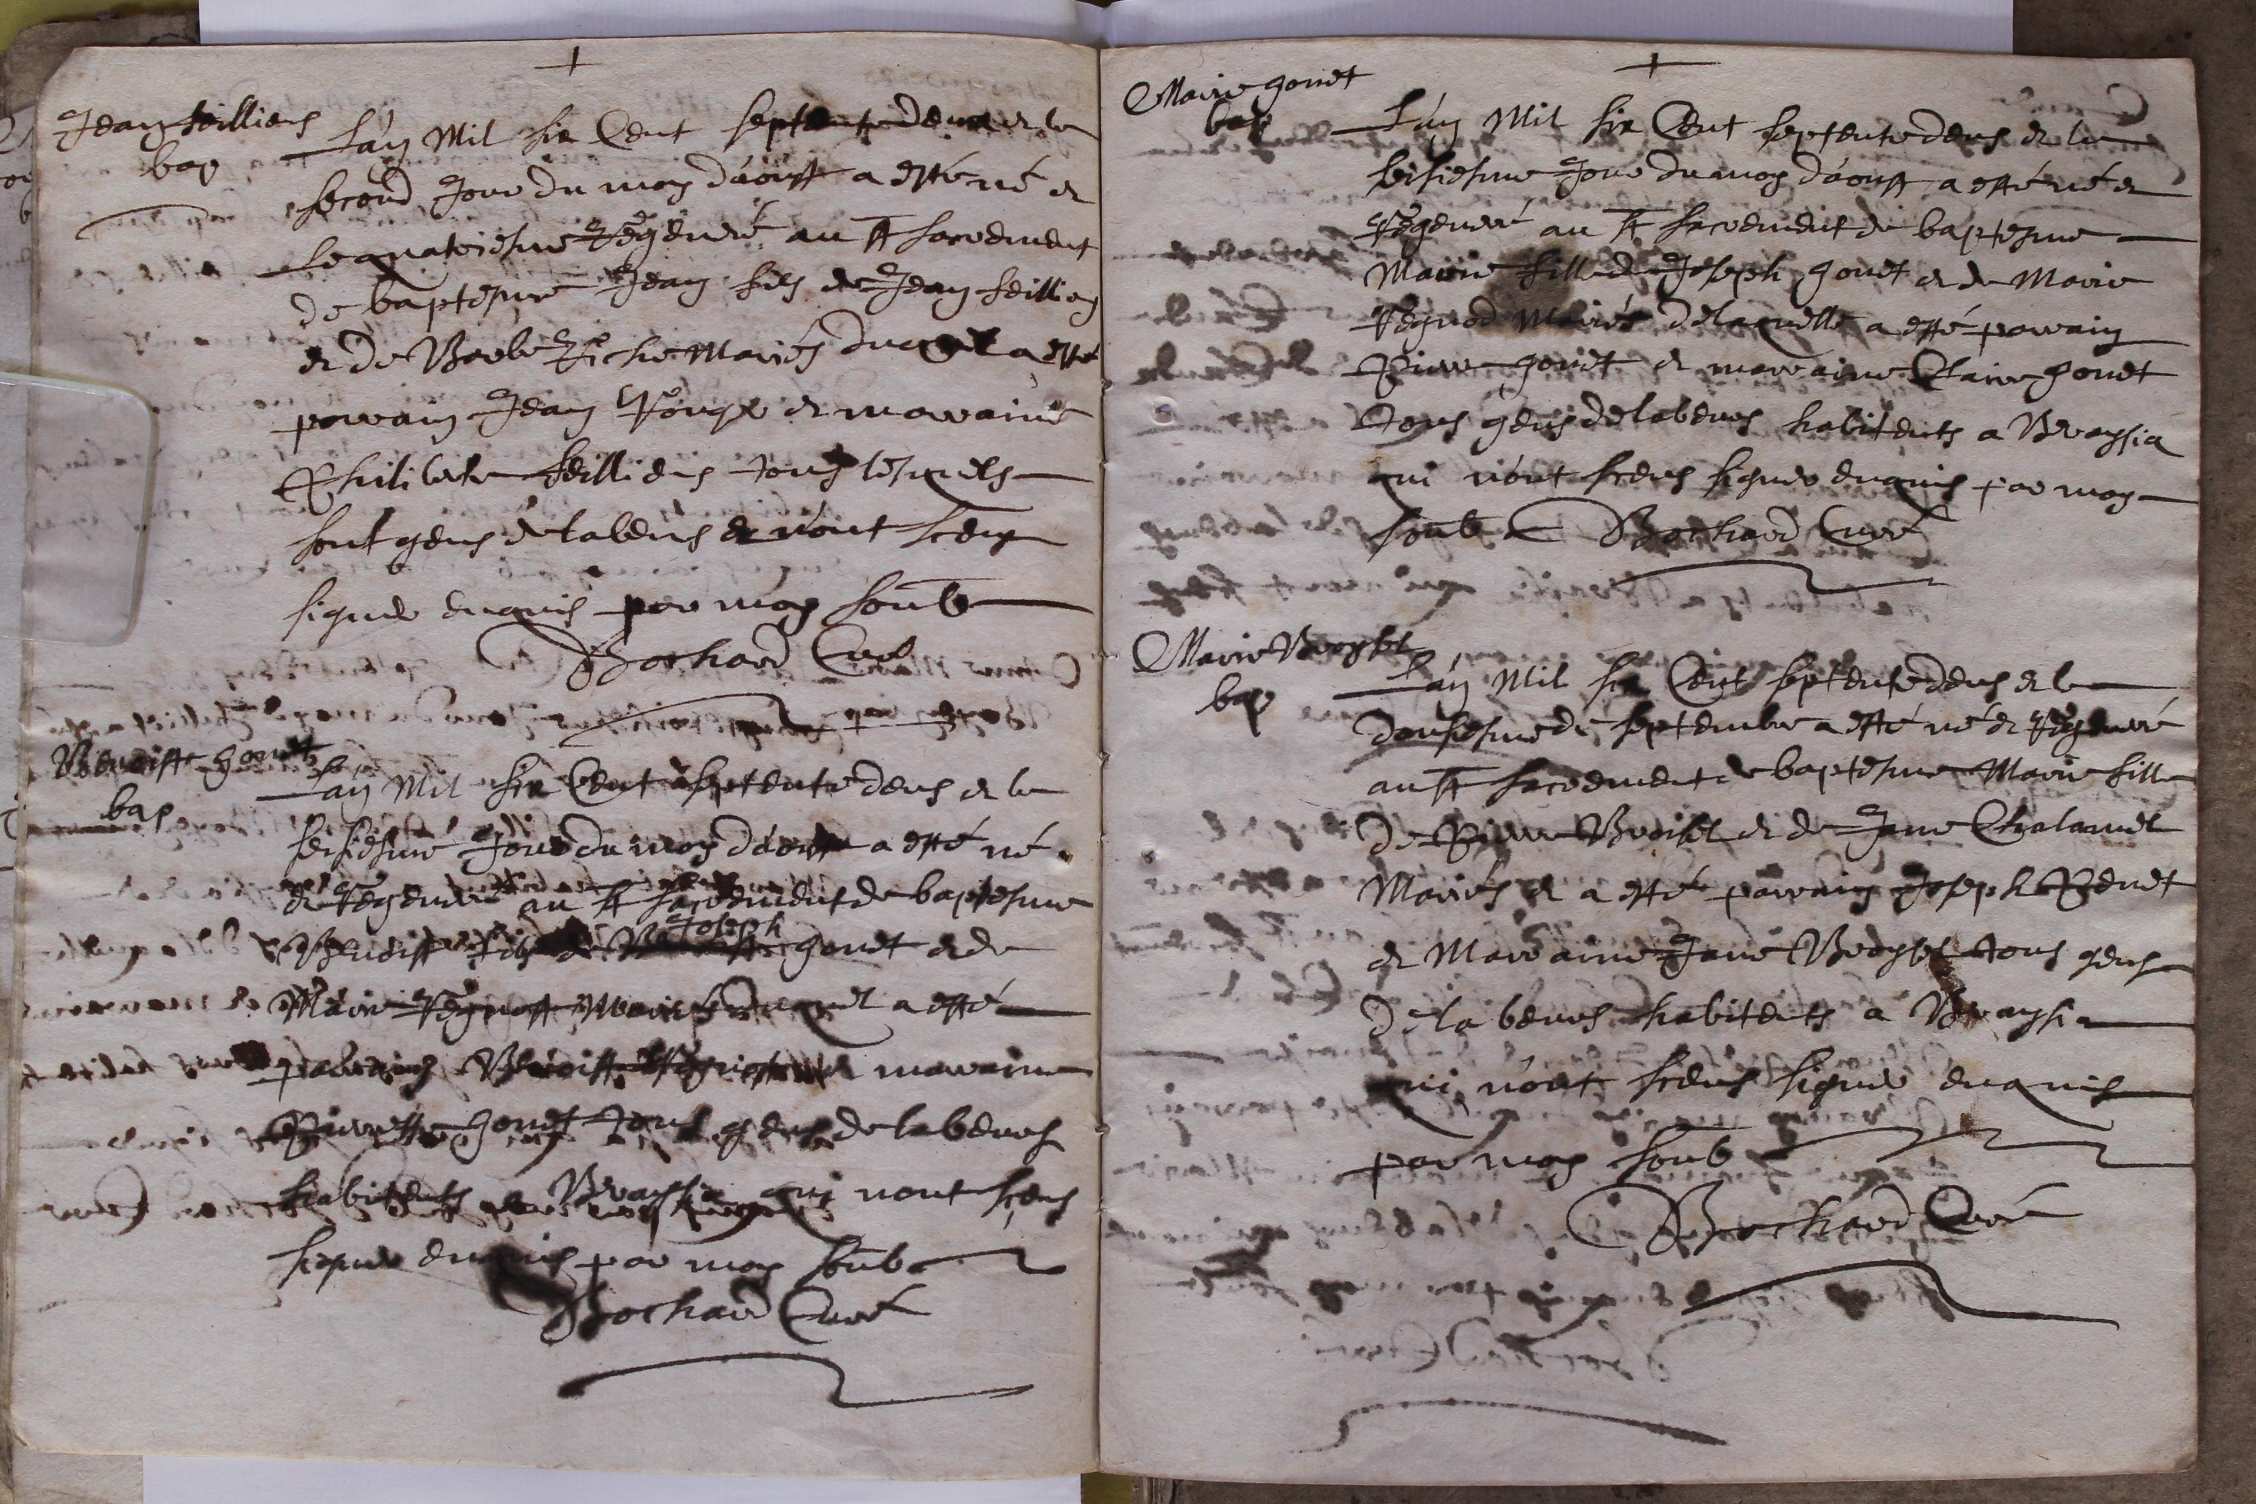 Jean feilliens
bap
L'an Mil six Cent septente deux et le
second Jour du moy d'aoust a esté né et
le quatriesme Regeneré au st sacrement
de baptesme Jean fils de Jean feillien
et de Barbe Riche Mariés duquel a esté
parrain Jean Rouge et marraine
Philiberte feilliens tous lesquels
sont gens de labeurs et n'ont sceus
signer enquis par moy soub
Bochard Curé
Benoiste gonet
bap
L'an Mil six Cent septente deus et le
seisiesme Jour du moy d'aoust a esté né
et Regeneré au st sacrement de baptesme
Benoist fils de Joseph gonet et de
Marie Regnost Mariés duquel a esté
parrains Benoist et marraine
Pierrette gonet tous gens de labeurs
habitents a Braysia qui nont sceus
signer enquis par moy soub
Bochard Curé
Marie gonet
bap
L'an Mil six Cent septente deus et le
seisiesme Jour du moy d'aoust a esté né et
Regeneré au st sacrement de baptesme
Marie fille de Joseph gonet et de Marie
Regnod Mariés delaquelle a esté parrain
Pierre gonet et marraine Claire gonet
tous gens de labeurs habitents a Braysia
qui n'ont sceus signer enquis par moy
soub Bochard Curé
Marie Broysset
bap
L'an Mil six Cent septente deus et le
dousiesme de septembre a esté né et Regeneré
au st sacrement de baptesme Marie fille
de Pierre et de Jane Chalamel
Mariés et a esté parrains Joseph Penet
et Marraine Jane tous gens
de labeurs habitents a Braysia
qui n'ont sceus signer enquis
par moy soub
Bochard Curé